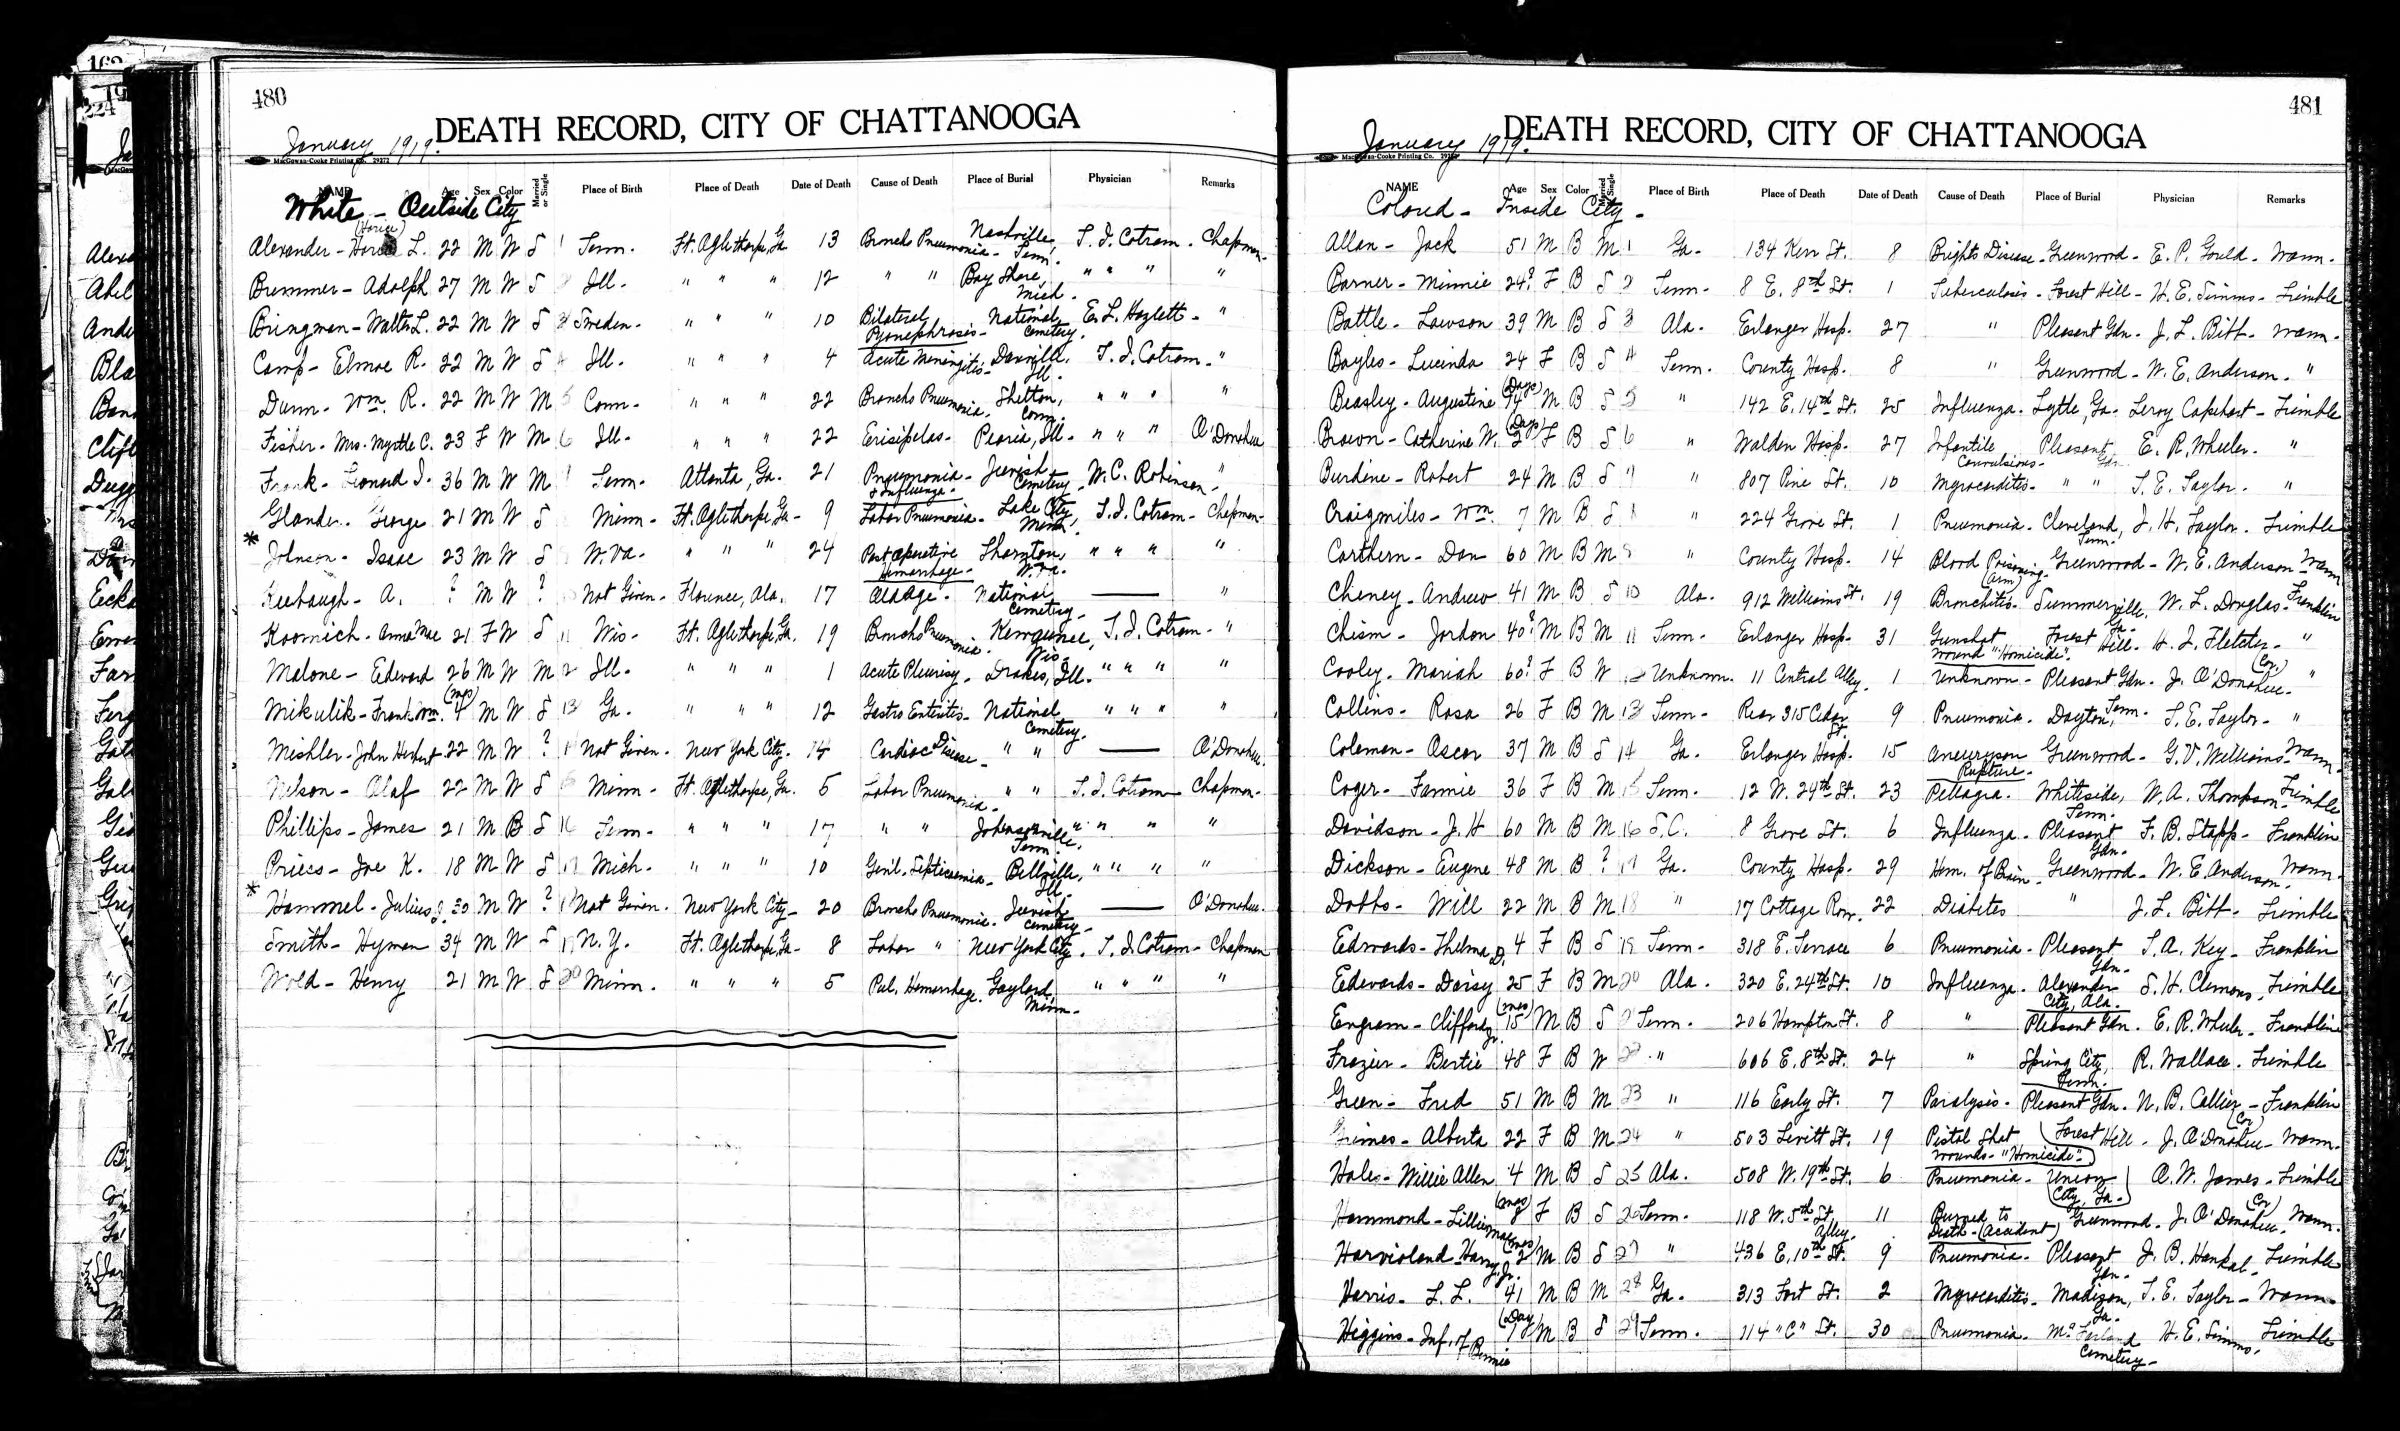 480
DEATH RECORD, CITY OF CHATTANOOGA
January 1919.
MacGowan-Cooke Printing Co. 29272
NAME Age Sex Color Married or Single Place of Birth Place of Death Date of Death Cause of Death Place of Burial Physician Remarks
White - Outside City
Alexander - Horace L. (Horice) 22 M W S 1 Tenn. Ft. Oglethorpe, Ga 13 Broncho Pneumonia - Nashville, Tenn. T. J. Cotram - Chapman -
Brummer - Adolph 27 M W S Ill - " " " 12 " " Bay Shore, Mich - " " " "
Bringman - Walter L. 22 M W S 3 Sweden - " " " 10 Bilateral Pyonephrosis - National Cemetery. E. L. Hazlett - "
Camp - Elmoe R. 22 M W S Ill - " " " 4 Acute Meningitis - Danville, Ill. T. J. Cotram - "
Dunn - Wm. R. 22 M W M Conn - " " " 22 Broncho Pneumonia. Shelton, Conn. " " " "
Fisher - Mrs. Myrtle C. 23 F W M 6 Ill - " " " 22 Erisipelas - Peoria, Ill - " " " O'Donohue
Frank - Leonard J. 36 M W M Tenn - Atlanta, Ga. 21 Pneumonia & Influenza - Jewish Cemetery - W. C. Robinson - "
Glander - George 21 M W S Minn - Ft. Oglethorpe, Ga - 9 Lobar Pneumonia - Lake City Minn, T. J. Cotram - Chapman -
* Johnson - Isaac 23 M W S W. Va - " " " 24 Post operative Hemorrhage - Thornton, W. Va. " " " "
Keebaugh - A. ? M W ? Not Given - Florence, Ala. 17 Old Age - National Cemetery - "
Koomich - Anna Mae 21 F W S 11 Wis - Ft. Oglethorpe, Ga. 19 Broncho Pneumonia. Kewaunee, Wis - T. J. Cotram - "
Malone - Edward 26 M W M 12 Ill - " " " 1 Acute Pleurisy - Drakes, Ill. " " " "
Mikulik - Frank Wm. (mos) 4 M W S 13 Ga. " " " 12 Gastro Enteritis - National Cemetery. " " " "
Mishler - John Herbert 22 M W ? 14 Not Given - New York City - 14 Cardiac Disease - " " O'Donohue.
Nelson - Olaf 22 M W S Minn - Ft. Oglethorpe, Ga. 5 Lobar Pneumonia - " " T. J. Cotram - Chapman -
Phillips - James 21 M B S 16 Tenn - " " " 17 " " Johnsonville, Tenn. " " " "
Priess - Joe K. 18 M W S 17 Mich - " " " 10 Gen'l. Septicaemia - Bellville, Ill. " " " "
* Hammel - Julius J. 30 M W ? Not Given. New York City - 20 Broncho Pneumonia. Jewish Cemetery - O'Donohue.
Smith - Hyman 34 M W S N. Y. Ft. Oglethorpe, Ga - 8 Lobar " New York City. T. J. Cotram - Chapman
Wold - Henry 21 M W S 20 Minn. " " " 5 Pul. Hemorrhage. Gaylord, Minn - " " " "
481
DEATH RECORD, CITY OF CHATTANOOGA
January 1919.
MacGowan-Cooke Printing Co. 29272
NAME Age Sex Color Married or Single Place of Birth Place of Death Date of Death Cause of Death Place of Burial Physician Remarks
Colored - Inside City -
Allan - Jack 51 M B M 1 Ga - 134 Kerr St. 8 Brights Disease - Greenwood - E. P. Gould - Wann -
Barner - Minnie 24? F B S 2 Tenn - 8 E. 8th St. 1 Tuberculosis - Forest Hill - H. E. Simms - Trimble
Battle - Lawson 39 M B S 3 Ala. Erlanger Hosp. 27 " Pleasant Gdn. J. L. Bitt - Wann -
Bayles - Lucinda 24 F B S 4 Tenn. County Hosp. 8 " Greenwood - W. E. Anderson - "
Beasley - Augustine (Days) 14 M B S 5 " 142 E. 14th St. 25 Influenza - Lytle, Ga - Leroy Capehart - Trimble
Brown - Catherine W. (Days) 2 F B S 6 " Walden Hosp - 27 Infantile Convulsions - Pleasant Gdn E. R. Wheeler - "
Burdine - Robert 24 M B S 7 " 807 Pine St. 10 Myocarditis - " " T. E. Taylor - "
Craigmiles - Wm. 7 M B S " 224 Grove St. 1 Pneumonia - Cleveland, Tenn. J. H. Taylor - Trimble
Carthern - Dan 60 M B M " County Hosp. 14 Blood Poisoning (arm) Greenwood - W. E. Anderson - Wann
Cheney - Andrew 41 M B S 10 Ala - 912 Williams St. 19 Bronchitis - Summerville, Ga - W. L. Douglas - Franklin
Chism - Jordon 40? M B M 11 Tenn - Erlanger Hosp. 31 Gunshot wound "Homicide". Forest Hill - H. J. Fletcher - "
Cooley - Mariah 60? F B W Unknown. 11 Central Alley. 1 Unknown - Pleasant Gdn - J. O'Donohue (Cor.) - "
Collins - Rosa 26 F B M 13 Tenn - Rear 315 Cedar St. 9 Pneumonia - Dayton, Tenn. T. E. Taylor - "
Coleman - Oscar 37 M B S 14 Ga. Erlanger Hosp. 15 Aneuryson Rupture - Greenwood - G. V. Williams - Wann -
Coger - Fannie 36 F B M 15 Tenn. 12 W. 24th St. 23 Pellagra - Whiteside, Tenn. W. A. Thompson - Trimble
Davidson - J. H 60 M B M 16 S. C. 8 Grove St. 6 Influenza - Pleasant Gdn - F. B. Stapp - Franklin
Dickson - Eugene 48 M B ? 17 Ga. County Hosp. 29 Hem. of Brain - Greenwood - W. E. Anderson. Wann.
Dobbs - Will 22 M B M 18 " 17 Cottage Row. 22 Diabetes " J. L. Bitt - Trimble
Edwards - Thelma D. 4 F B S 19 Tenn - 318 E. Terrace 6 Pneumonia - Pleasant Gdn - T. A. Key - Franklin
Edwards - Daisy 25 F B M 20 Ala. 320 E. 24th St. 10 Influenza - Alexander City, Ala. S. H. Clemons, Trimble
Engram - Clifford Jr. (mos) 15 M B S Tenn. 206 Hampton St. 8 " Pleasant Gdn - E. R. Wheeler - Franklin
Frazier - Bertie 48 F B W 22 " 606 E. 8th St. 24 " Spring City, Tenn. R. Wallace - Trimble
Green - Fred 51 M B M 23 " 116 Early St. 7 Paralysis - Pleasant Gdn. N. B. Callier - Franklin
Grimes - Alberta 22 F B M 24 " 503 Levitt St. 19 Pistol Shot wounds - "Homicide" - Forest Hill - J. O'Donohue (Cor) - Wann.
Hales - Willie Allen 4 M B S 25 Ala. 508 W. 19th St. 6 Pneumonia - Union City, Ga - O. W. James - Trimble
Hammond - Lillian Mae (mos) 8 F B S 26 Tenn. 118 W. 5th St Alley. 11 Burned to Death - (Accident) Greenwood - J. O'Donohue (Cor) - Wann.
Harvioland - Harry J. Jr. (mos) 2 M B S 27 " 436 E. 10th St. 9 Pneumonia - Pleasant Gdn - J. B. Henkal - Trimble
Harris - L. L. 41 M B M 28 Ga - 313 Fort St. 2 Myocarditis - Madison, Ga - T. E. Taylor - Wann -
Higgins - Inf. of Bennie (Day) 1 M B S 29 Tenn. 114 "C" St. 30 Pneumonia - Cemetery - H. E. Simms, Trimble